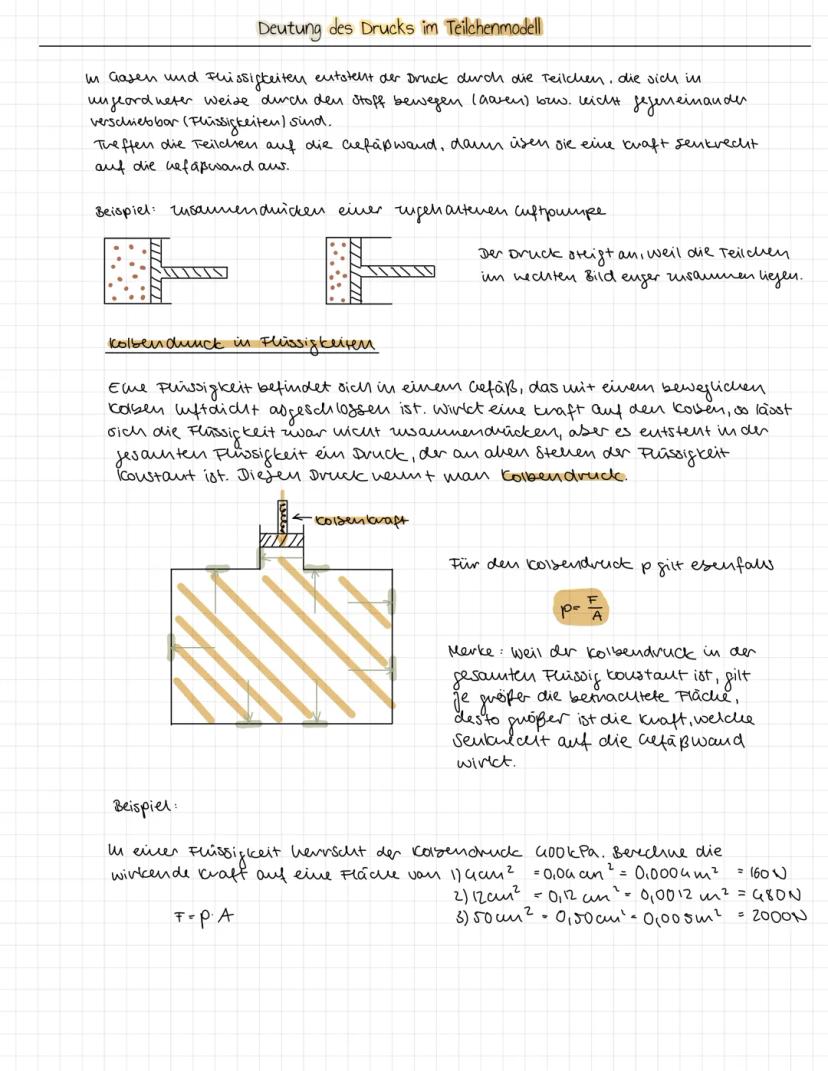 Deutung des Drucks im Teilchenmodell
In Gasen und Flüssigkeiten entsteht der Druck durch die Teilchen, die sich in
ungeordneter Weise durch den Stoff bewegen (Gasen) bzw. leicht gegeneinander
verschiebbar (Flüssigkeiten) sind.
Treffen die Teilchen auf die Gefäßwand, dann üben sie eine Kraft senkrecht
auf die Gefäßwand aus.
Beispiel: Zusammendrücken einer zugehaltenen Luftpumpe
Der Druck steigt an, weil die Teilchen
im rechten Bild enger zusammen liegen.
Kolbendruck in Flüssigkeiten
Eine Flüssigkeit befindet sich in einem Gefäß, das mit einem beweglichen
Kolben luftdicht abgeschlossen ist. Wirkt eine Kraft auf den Kolben, so lässt
sich die Flüssigkeit zwar nicht zusammendrücken, aber es entsteht in der
gesamten Flüssigkeit ein Druck, der an allen Stellen der Flüssigkeit
konstant ist. Diesen Druck nennt man Kolbendruck.
← Kolbenkraft
Für den Kolbendruck p gilt ebenfalls
p = F/A
Merke: Weil der Kolbendruck in der
gesamten Flüssig konstant ist, gilt
je größer die betrachtete Fläche,
desto größer ist die Kraft, welche
senkrecht auf die Gefäßwand
wirkt.
Beispiel:
In einer Flüssigkeit herrscht der Kolbendruck 400kPa. Berechne die
wirkende Kraft auf eine Fläche von 1) 4cm² = 0,04 cm² = 0,0004 m² = 160 N
2) 12cm² = 0,12 cm² = 0,0012 m² = 480N
F = p · A 3) 50cm² = 0,50cm² = 0,005m² = 2000N